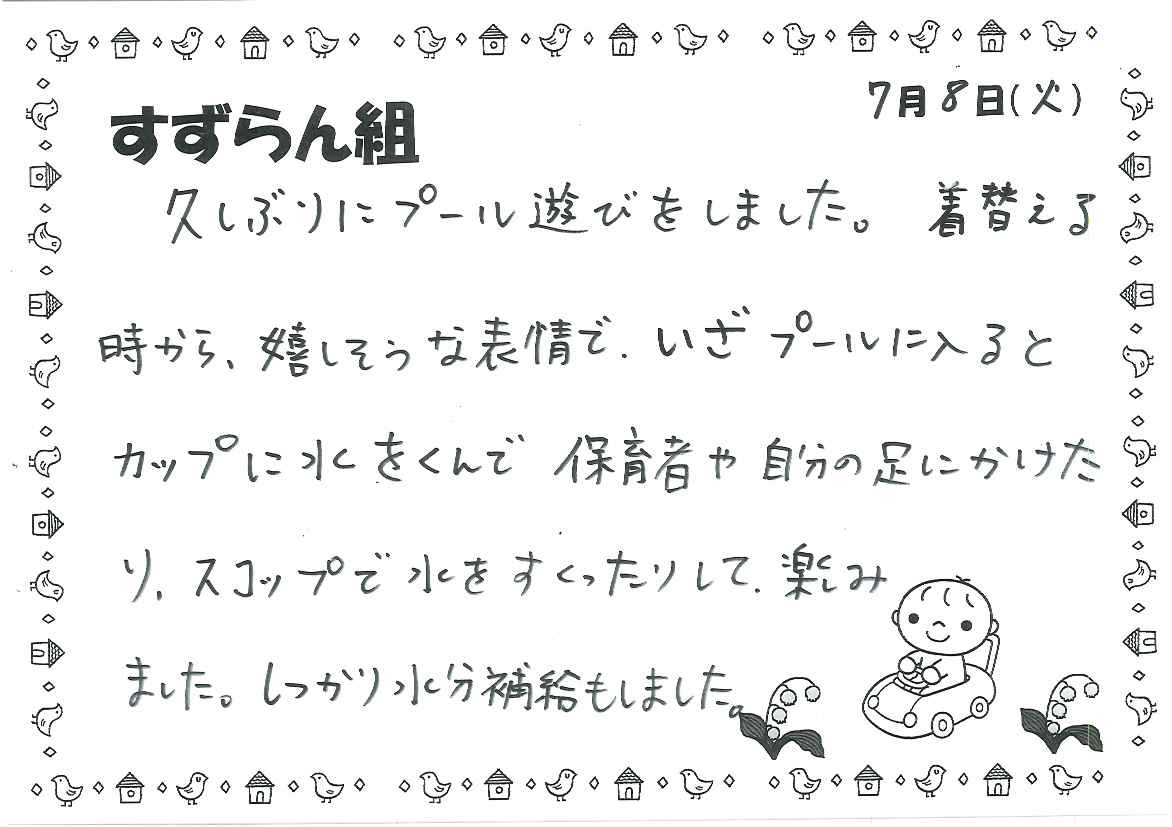 7月8日(火)
すずらん組
久しぶりにプール遊びをしました。 着替える
時から、嬉しそうな表情で、いざプールに入ると
カップに水をくんで 保育者や自分の足にかけた
り、スコップで水をすくったりして、楽しみ
ました。しっかり水分補給もしました。